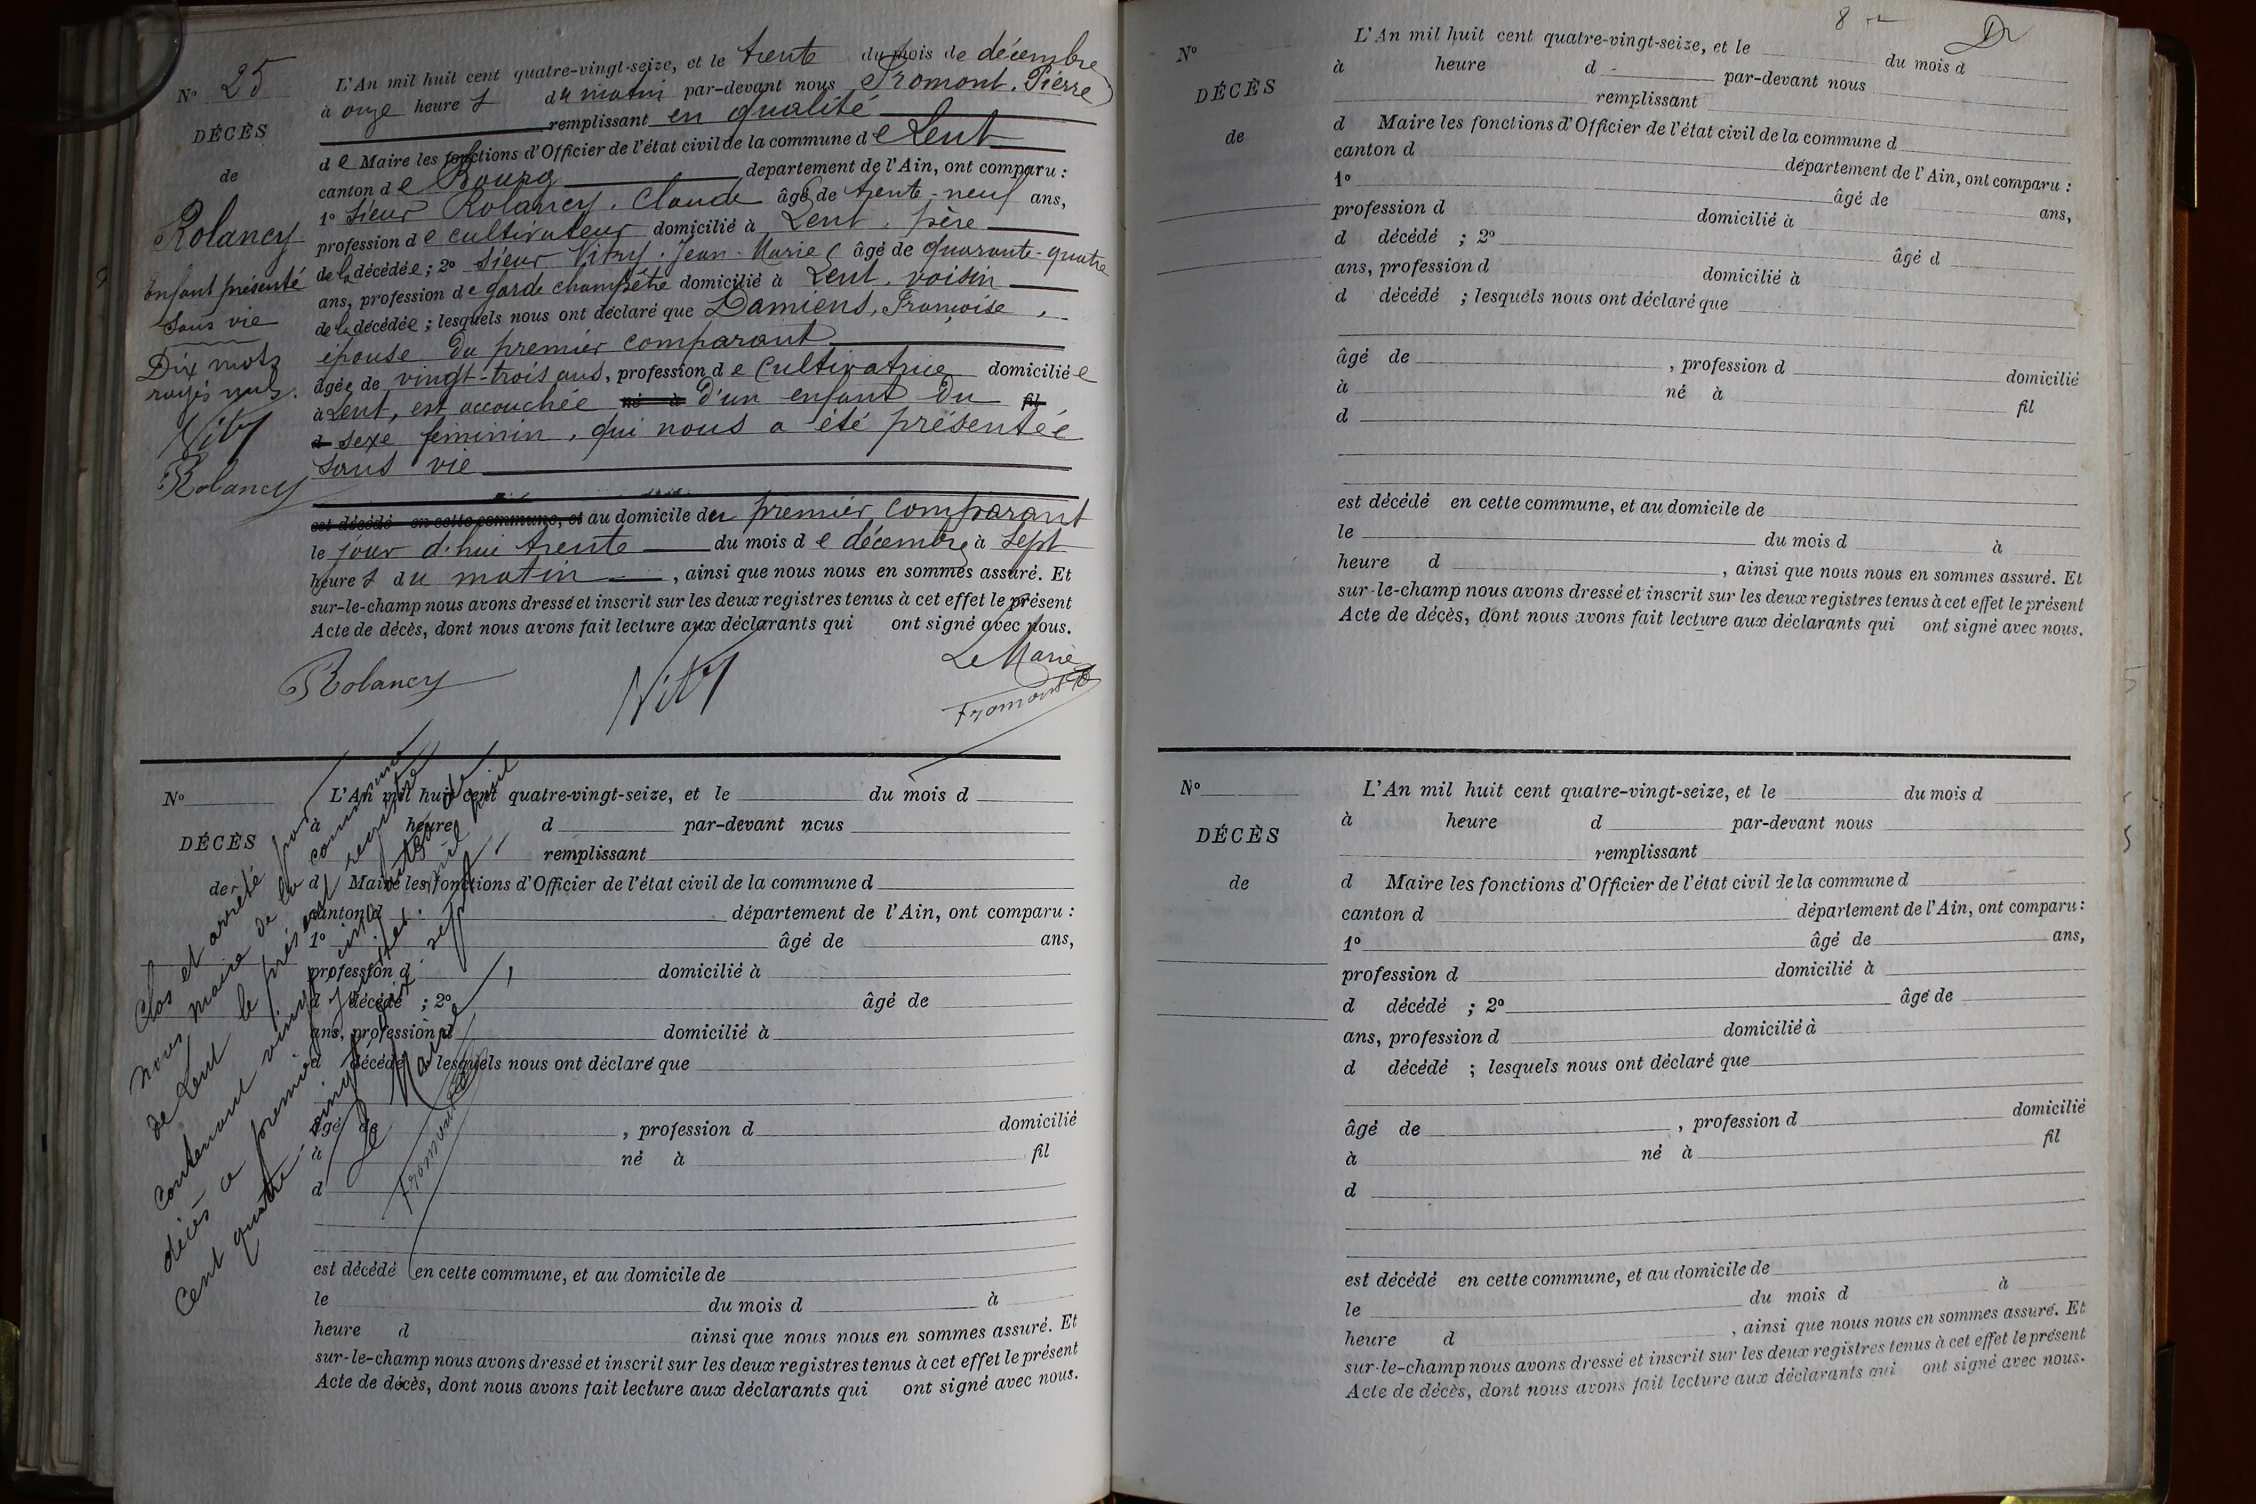 N° 25
DÉCÈS
de
Rolancy
Enfant présenté
sans vie
Dix mots
rayés nuls.
Vitry
Rolancy
L'An mil huit cent quatre-vingt-seize, et le trente du mois de décembre
à onze heures du matin par-devant nous Fromont, Pierre
remplissant en qualité
de Maire les fonctions d'Officier de l'état civil de la commune de Lent
canton de Bourg département de l'Ain, ont comparu :
1° Sieur Rolancy, Claude âgé de trente-neuf ans,
profession de cultivateur domicilié à Lent, père
de la décédée ; 2° Sieur Vitry, Jean-Marie âgé de quarante-quatre
ans, profession de garde champêtre domicilié à Lent, voisin
de la décédée ; lesquels nous ont déclaré que Damiens, Françoise,
épouse du premier comparant
âgée de vingt-trois ans, profession de cultivatrice domiciliée
à Lent, est accouchée né à d'un enfant du fil
d sexe féminin, qui nous a été présentée
sans vie
est décédé en cette commune, et au domicile du premier comparant
le jour d'hui trente du mois de décembre à sept
heures du matin , ainsi que nous nous en sommes assuré. Et
sur-le-champ nous avons dressé et inscrit sur les deux registres tenus à cet effet le présent
Acte de décès, dont nous avons fait lecture aux déclarants qui ont signé avec nous.
Rolancy Vitry Le Maire
Fromont
N°
DÉCÈS
de
L'An mil huit cent quatre-vingt-seize, et le du mois d
à heure d par-devant nous
remplissant
d Maire les fonctions d'Officier de l'état civil de la commune d
canton d département de l'Ain, ont comparu :
1° âgé de ans,
profession d domicilié à
d décédé ; 2° âgé de
ans, profession d domicilié à
d décédé ; lesquels nous ont déclaré que
âgé de , profession d domicilié
à né à fil
d
est décédé en cette commune, et au domicile de
le du mois d à
heure d ainsi que nous nous en sommes assuré. Et
sur-le-champ nous avons dressé et inscrit sur les deux registres tenus à cet effet le présent
Acte de décès, dont nous avons fait lecture aux déclarants qui ont signé avec nous.
Clos et arrêté par
nous maire de la commune
de Lent le présent registre
contenant vingt cinq actes de
décès ce premier janvier mil huit
cent quatre-vingt dix sept
Le Maire
Fromont
8
N°
DÉCÈS
de
L'An mil huit cent quatre-vingt-seize, et le du mois d
à heure d par-devant nous
remplissant
d Maire les fonctions d'Officier de l'état civil de la commune d
canton d département de l'Ain, ont comparu :
1° âgé de ans,
profession d domicilié à
d décédé ; 2° âgé d
ans, profession d domicilié à
d décédé ; lesquels nous ont déclaré que
âgé de , profession d domicilié
à né à fil
d
est décédé en cette commune, et au domicile de
le du mois d à
heure d , ainsi que nous nous en sommes assuré. Et
sur-le-champ nous avons dressé et inscrit sur les deux registres tenus à cet effet le présent
Acte de décès, dont nous avons fait lecture aux déclarants qui ont signé avec nous.
N°
DÉCÈS
de
L'An mil huit cent quatre-vingt-seize, et le du mois d
à heure d par-devant nous
remplissant
d Maire les fonctions d'Officier de l'état civil de la commune d
canton d département de l'Ain, ont comparu :
1° âgé de ans,
profession d domicilié à
d décédé ; 2° âgé de
ans, profession d domicilié à
d décédé ; lesquels nous ont déclaré que
âgé de , profession d domicilié
à né à fil
d
est décédé en cette commune, et au domicile de
le du mois d à
heure d , ainsi que nous nous en sommes assuré. Et
sur-le-champ nous avons dressé et inscrit sur les deux registres tenus à cet effet le présent
Acte de décès, dont nous avons fait lecture aux déclarants qui ont signé avec nous.